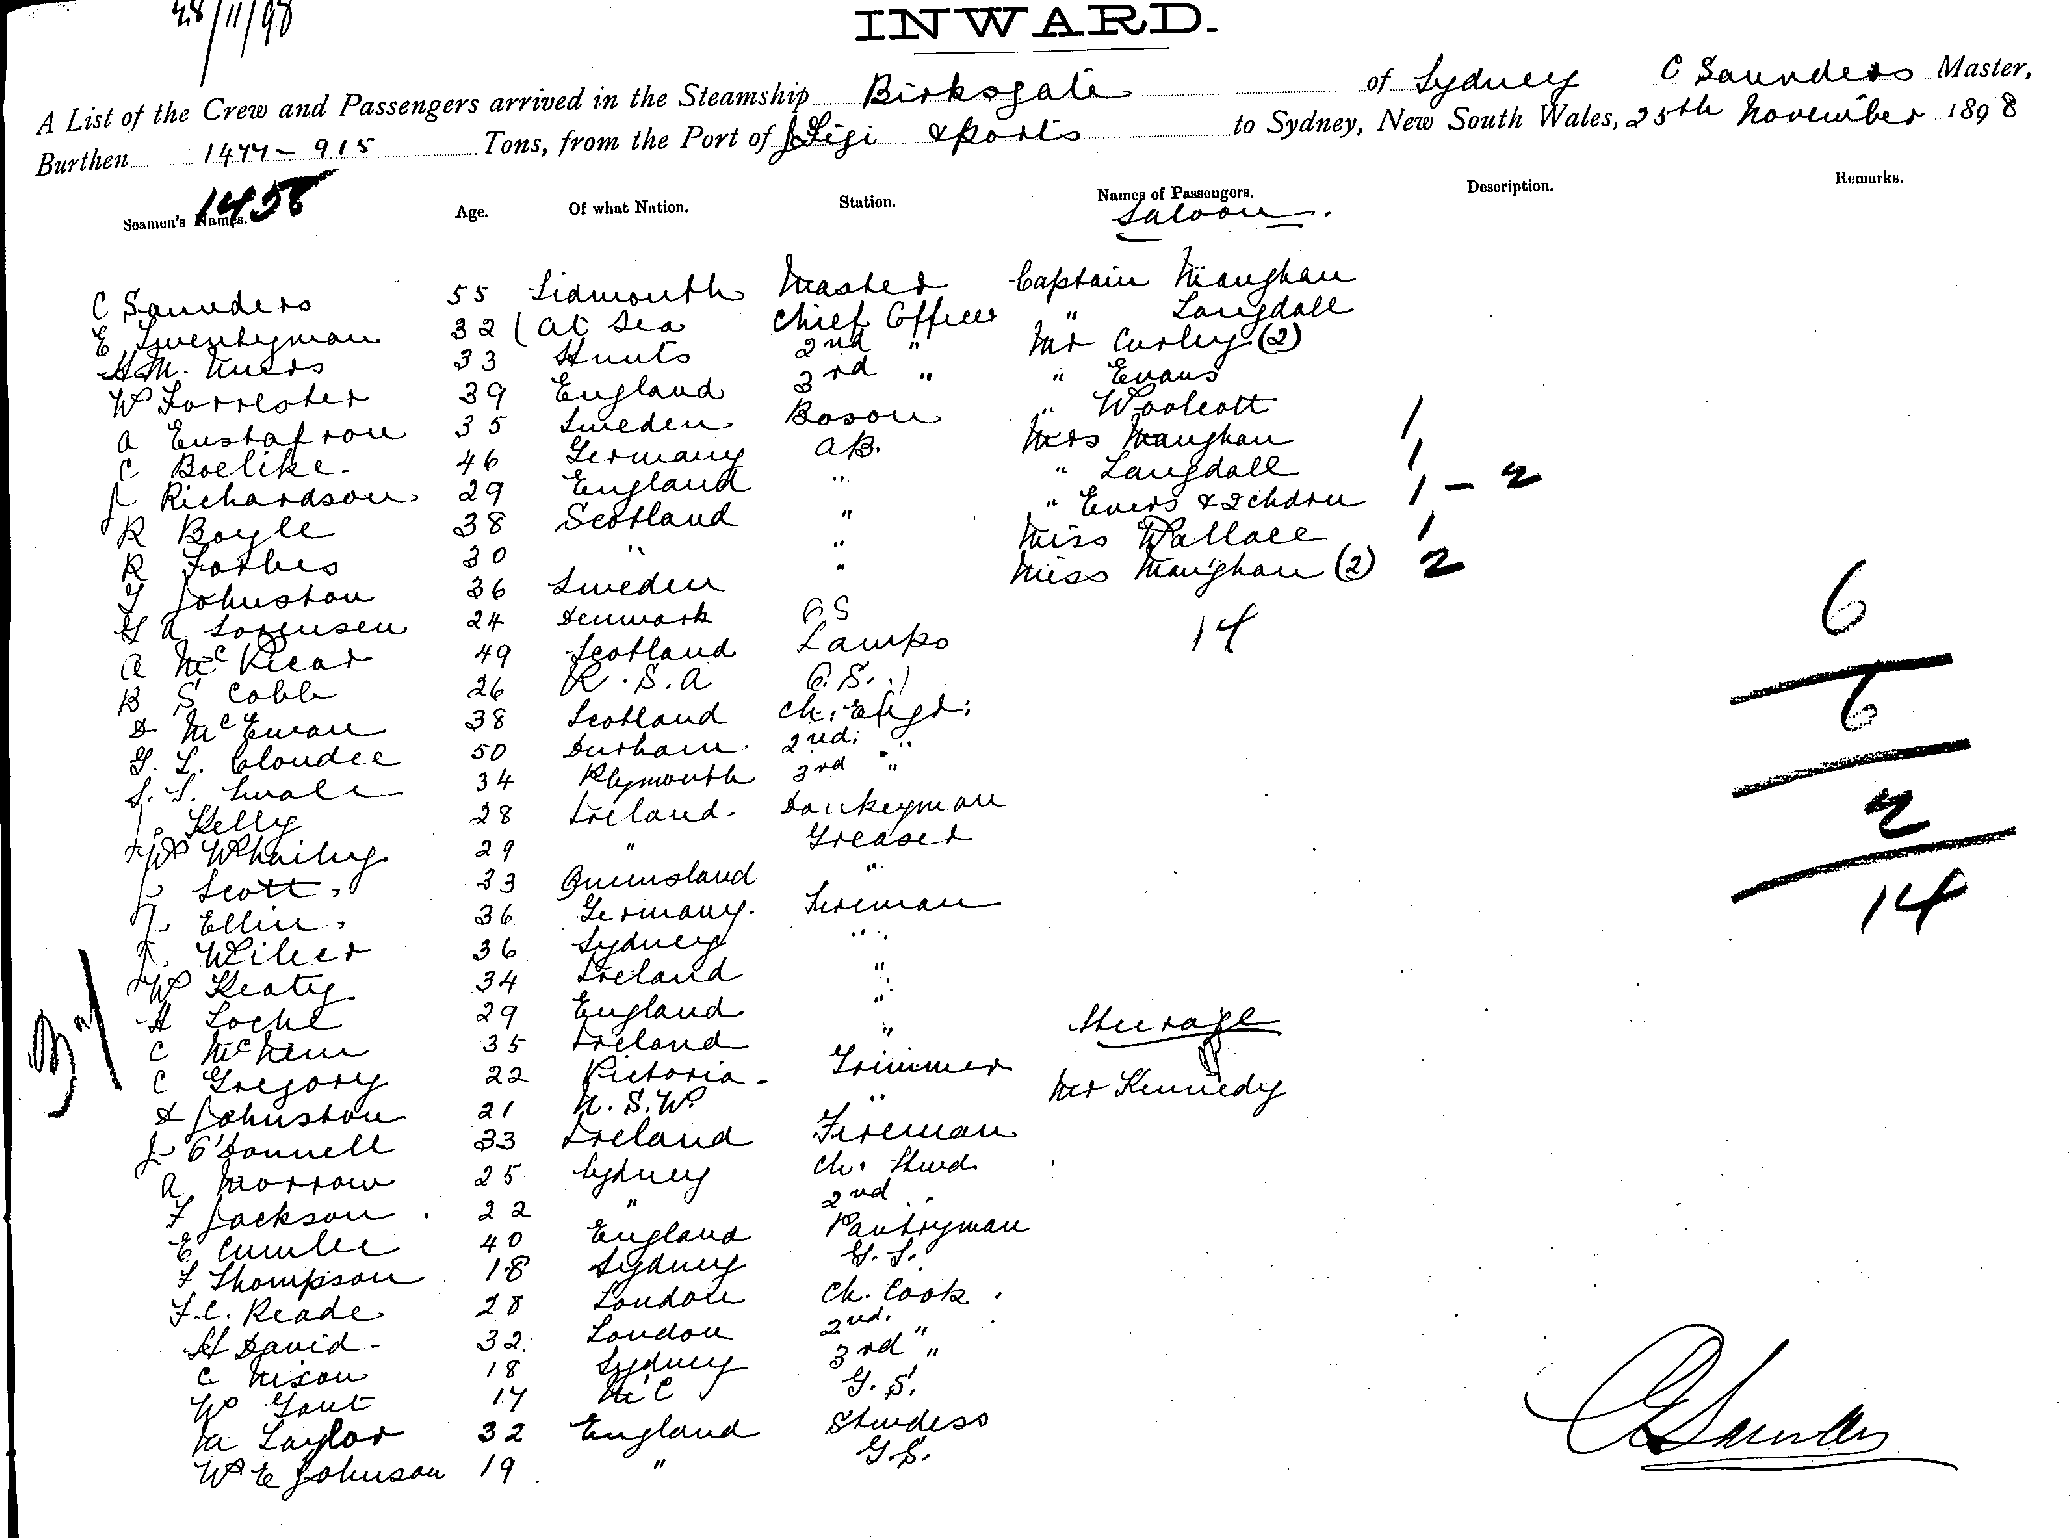 28/11/98
INWARD.
A List of the Crew and Passengers arrived in the Steamship Birksgate of Sydney C Saunders Master,
Burthen 1477-915 Tons, from the Port of Fiji & Ports to Sydney, New South Wales, 25th November 1898
1458
Seamen's Names. Age. Of what Nation. Station. Names of Passengers. Description. Remarks.
Saloon.
C Saunders 55 Sidmouth Master Captain Maughan
E Twentyman 32 At Sea Chief Officer " Langdall
H.M. 33 Hunts 2nd " Mr Curley (2)
W Forrester 39 England 3rd " " Evans
A Gustafson 35 Sweden Boson " Woolcott
C Boelike 46 Germany AB. Mrs Maughan 1
J Richardson 29 England " " Langdall 1
R Boyle 38 Scotland " " Evers & 2 chdrn 1 - 2
R Forbes 30 " " Miss Wallace 1
T Johnston 36 Sweden " Miss Maughan (2) 2
G A Sorensen 24 Denmark OS 14
A McVicar 49 Scotland Lamps
B S Cobb 26 O.S.
D McEwan 38 Scotland Ch. Engr.
G. L. Cloudee 50 Durham 2nd "
S. S. Swale 34 Plymouth 3rd "
J. Kelly 28 Ireland. Donkeyman
W Whaily 29 " Greaser
J Scott 33 Queensland "
J. Ellin 36 Germany. Fireman
J. Wilier 36 Sydney "
W Keaty 34 Ireland "
H Locke 29 England "
C McNem 35 Ireland "
C Gregory 22 Victoria Trimmer
A Johnston 21 N.S.W. "
J O'Donnell 33 Ireland Fireman
A Morrow 25 Sydney Ch. Stwd
F Jackson 22 " 2nd "
E Cumlee 40 England Pantryman
F Thompson 18 Sydney G.S.
F.C. Reade 28 London Ch. Cook
H David 32 London 2nd "
C Nixon 18 Sydney 3rd "
W Gant 17 N C G.S.
M Taylor 32 England Stwdess
W E Johnson 19 " G.S.
Steerage
Mr Kennedy
6
6
2
14
C Saunders